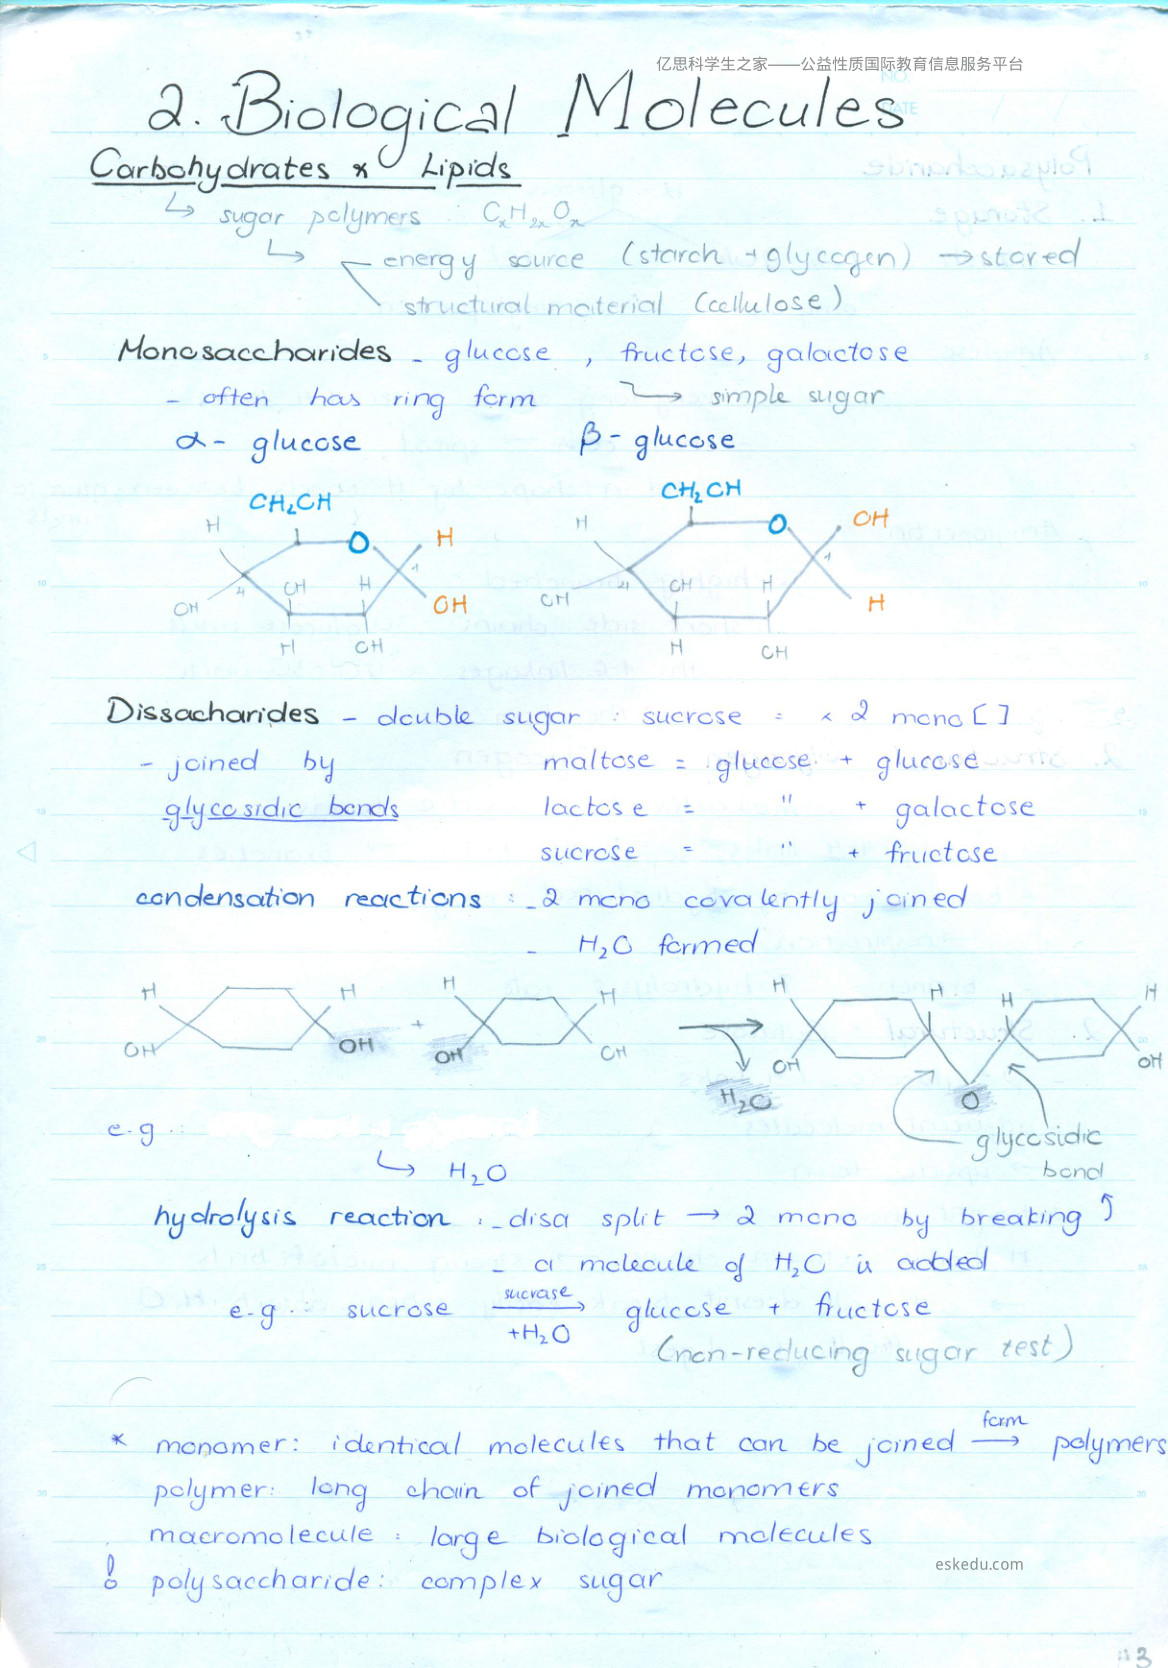 亿思科学生之家——公益性质国际教育信息服务平台
2. Biological Molecules
Carbohydrates & Lipids
↳ sugar polymers : CxH2xOx
↳ energy source (starch + glycogen) → stored
structural material (cellulose)
Monosaccharides - glucose, fructose, galactose
- often has ring form ↳ simple sugar
α- glucose β- glucose
CH2OH CH2OH
H O H H O OH
4 OH H 1 4 OH H 1
OH OH OH H
H OH H OH
Dissacharides - double sugar : sucrose = < 2 mono [ ]
- joined by maltose = glucose + glucose
glycosidic bonds lactose = " + galactose
sucrose = " + fructose
condensation reactions : - 2 mono covalently joined
- H2O formed
H H + H H → H H H H
OH OH OH OH H2O OH O OH
e.g : glycosidic
↳ H2O bond
hydrolysis reaction : - disa split → 2 mono by breaking ↑
- a molecule of H2O is added
e.g : sucrose sucrase → +H2O glucose + fructose
(non-reducing sugar test)
* monomer: identical molecules that can be joined form → polymers
polymer: long chain of joined monomers
macromolecule : large biological molecules
eskedu.com
! polysaccharide: complex sugar
3